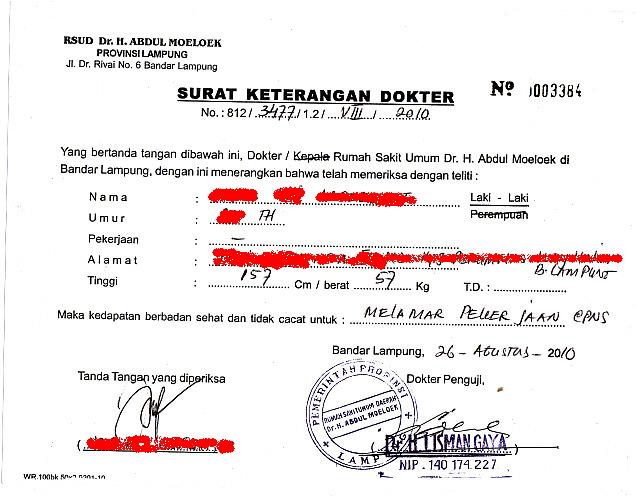 RSUD Dr. H. ABDUL MOELOEK
PROVINSI LAMPUNG
Jl. Dr. Rivai No. 6 Bandar Lampung
Nº 003384
SURAT KETERANGAN DOKTER
No. : 812 / 3477 / 1.2 / VIII / 2010
Yang bertanda tangan dibawah ini, Dokter / Kepala Rumah Sakit Umum Dr. H. Abdul Moeloek di
Bandar Lampung, dengan ini menerangkan bahwa telah memeriksa dengan teliti :
Nama : Laki - Laki
Umur : TH Perempuan
Pekerjaan : –
Alamat :
B. LAMPUNG
Tinggi : 157 Cm / berat 57 Kg T.D. :
Maka kedapatan berbadan sehat dan tidak cacat untuk : MELAMAR PEKERJAAN CPNS
Bandar Lampung, 26 - AGUSTUS - 2010
Tanda Tangan yang diperiksa
Dokter Penguji,
PEMERINTAH PROVINSI
RUMAH SAKIT UMUM DAERAH
Dr. H. ABDUL MOELOEK
LAMPUNG
Dr. H. LISMAN GAYA
NIP. 140 174 227